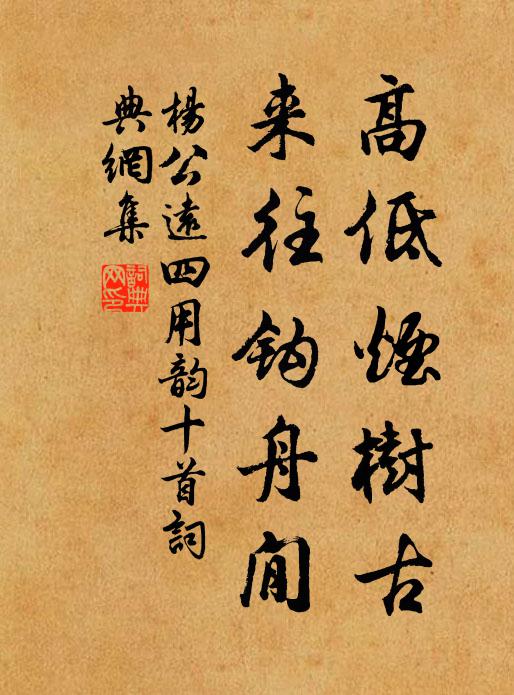 高低煙樹古
来往钩舟閒
楊公遠四用韵十首詞
典網集
詞典网印